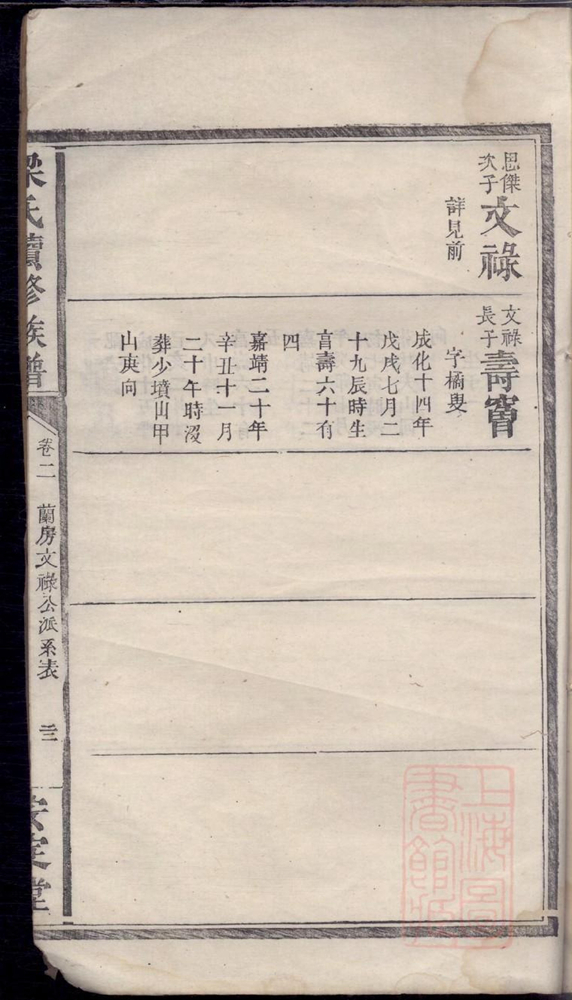 恩傑次子文祿
詳見前
文祿長子壽㝯
字橘叟
成化十四年
戊戌七月二
十九辰時生
享壽六十有
四
嘉靖二十年
辛丑十一月
二十午時沒
葬少墳山甲
山庚向
梁氏續修族譜
卷二
蘭房文祿公派系表
三
安定堂
上海圖書館藏